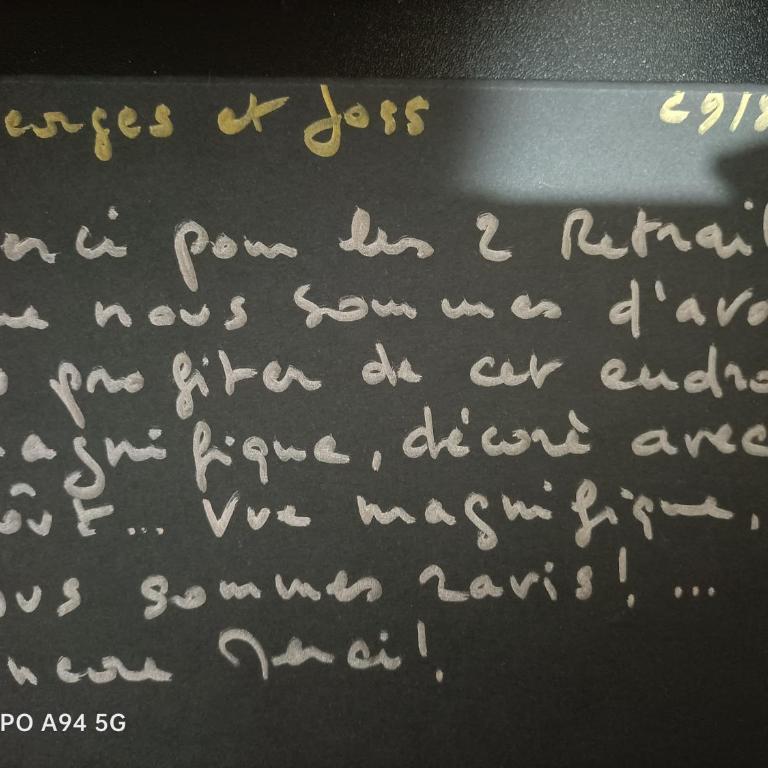 eorges et Joss c9/8
erci pour les 2 Retrai
ue nous sommes d'avo
profiter de cet endro
agnifique, décoré avec
oût... Vue magnifique,
ous sommes ravis! ...
ncore Merci!
PO A94 5G